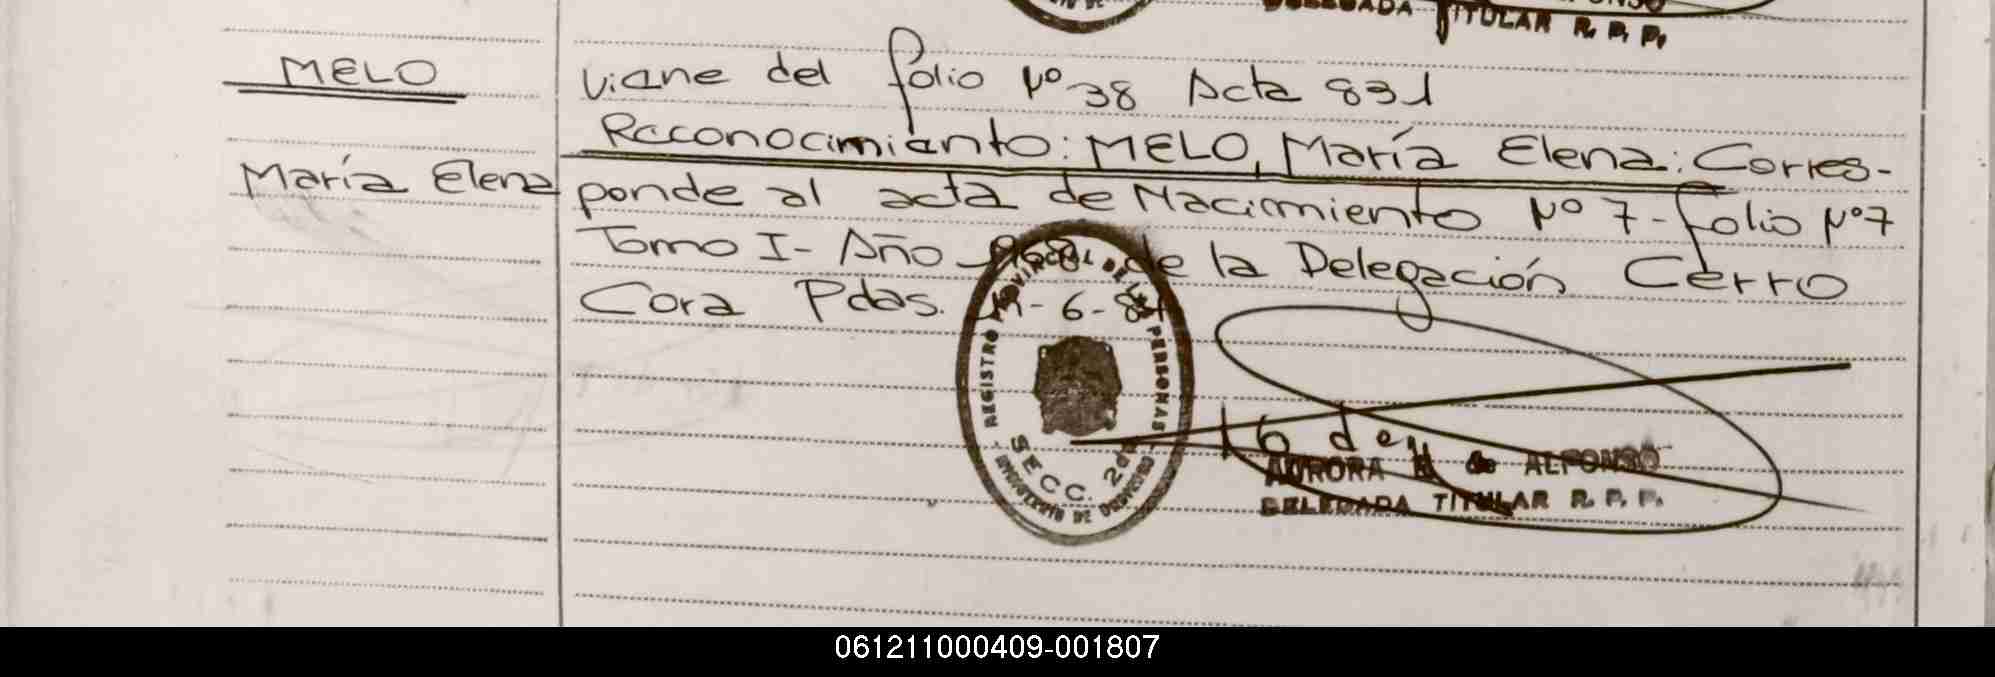 DELEGADA TITULAR R. P. P.
MELO
Viene del folio Nº 38 Acta 831
Reconocimiento: MELO, María Elena: Corres-
María Elena
ponde al acta de Nacimiento Nº 7 - folio Nº 7
Tomo I - Año de la Delegación Cerro
Cora Pdas. - 6 - 84
REGISTRO PROVINCIAL DE LAS PERSONAS
SECC. 2da
AURORA de ALFONSO
DELEGADA TITULAR R. P. P.
061211000409-001807